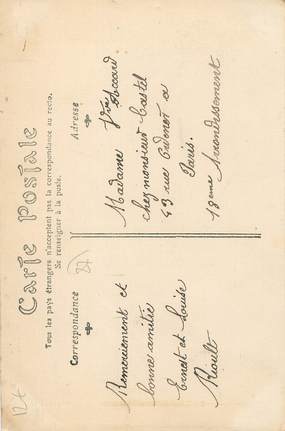 Carte Postale
Tous les pays étrangers n'acceptent pas la correspondance au recto.
Se renseigner à la poste.
Correspondance
Adresse
Remerciement et
bonne amitié
Ernest et Louise
Rioult
Madame Vve Accard
chez monsieur Castel
43 rue a
Paris.
18eme Arrondissement